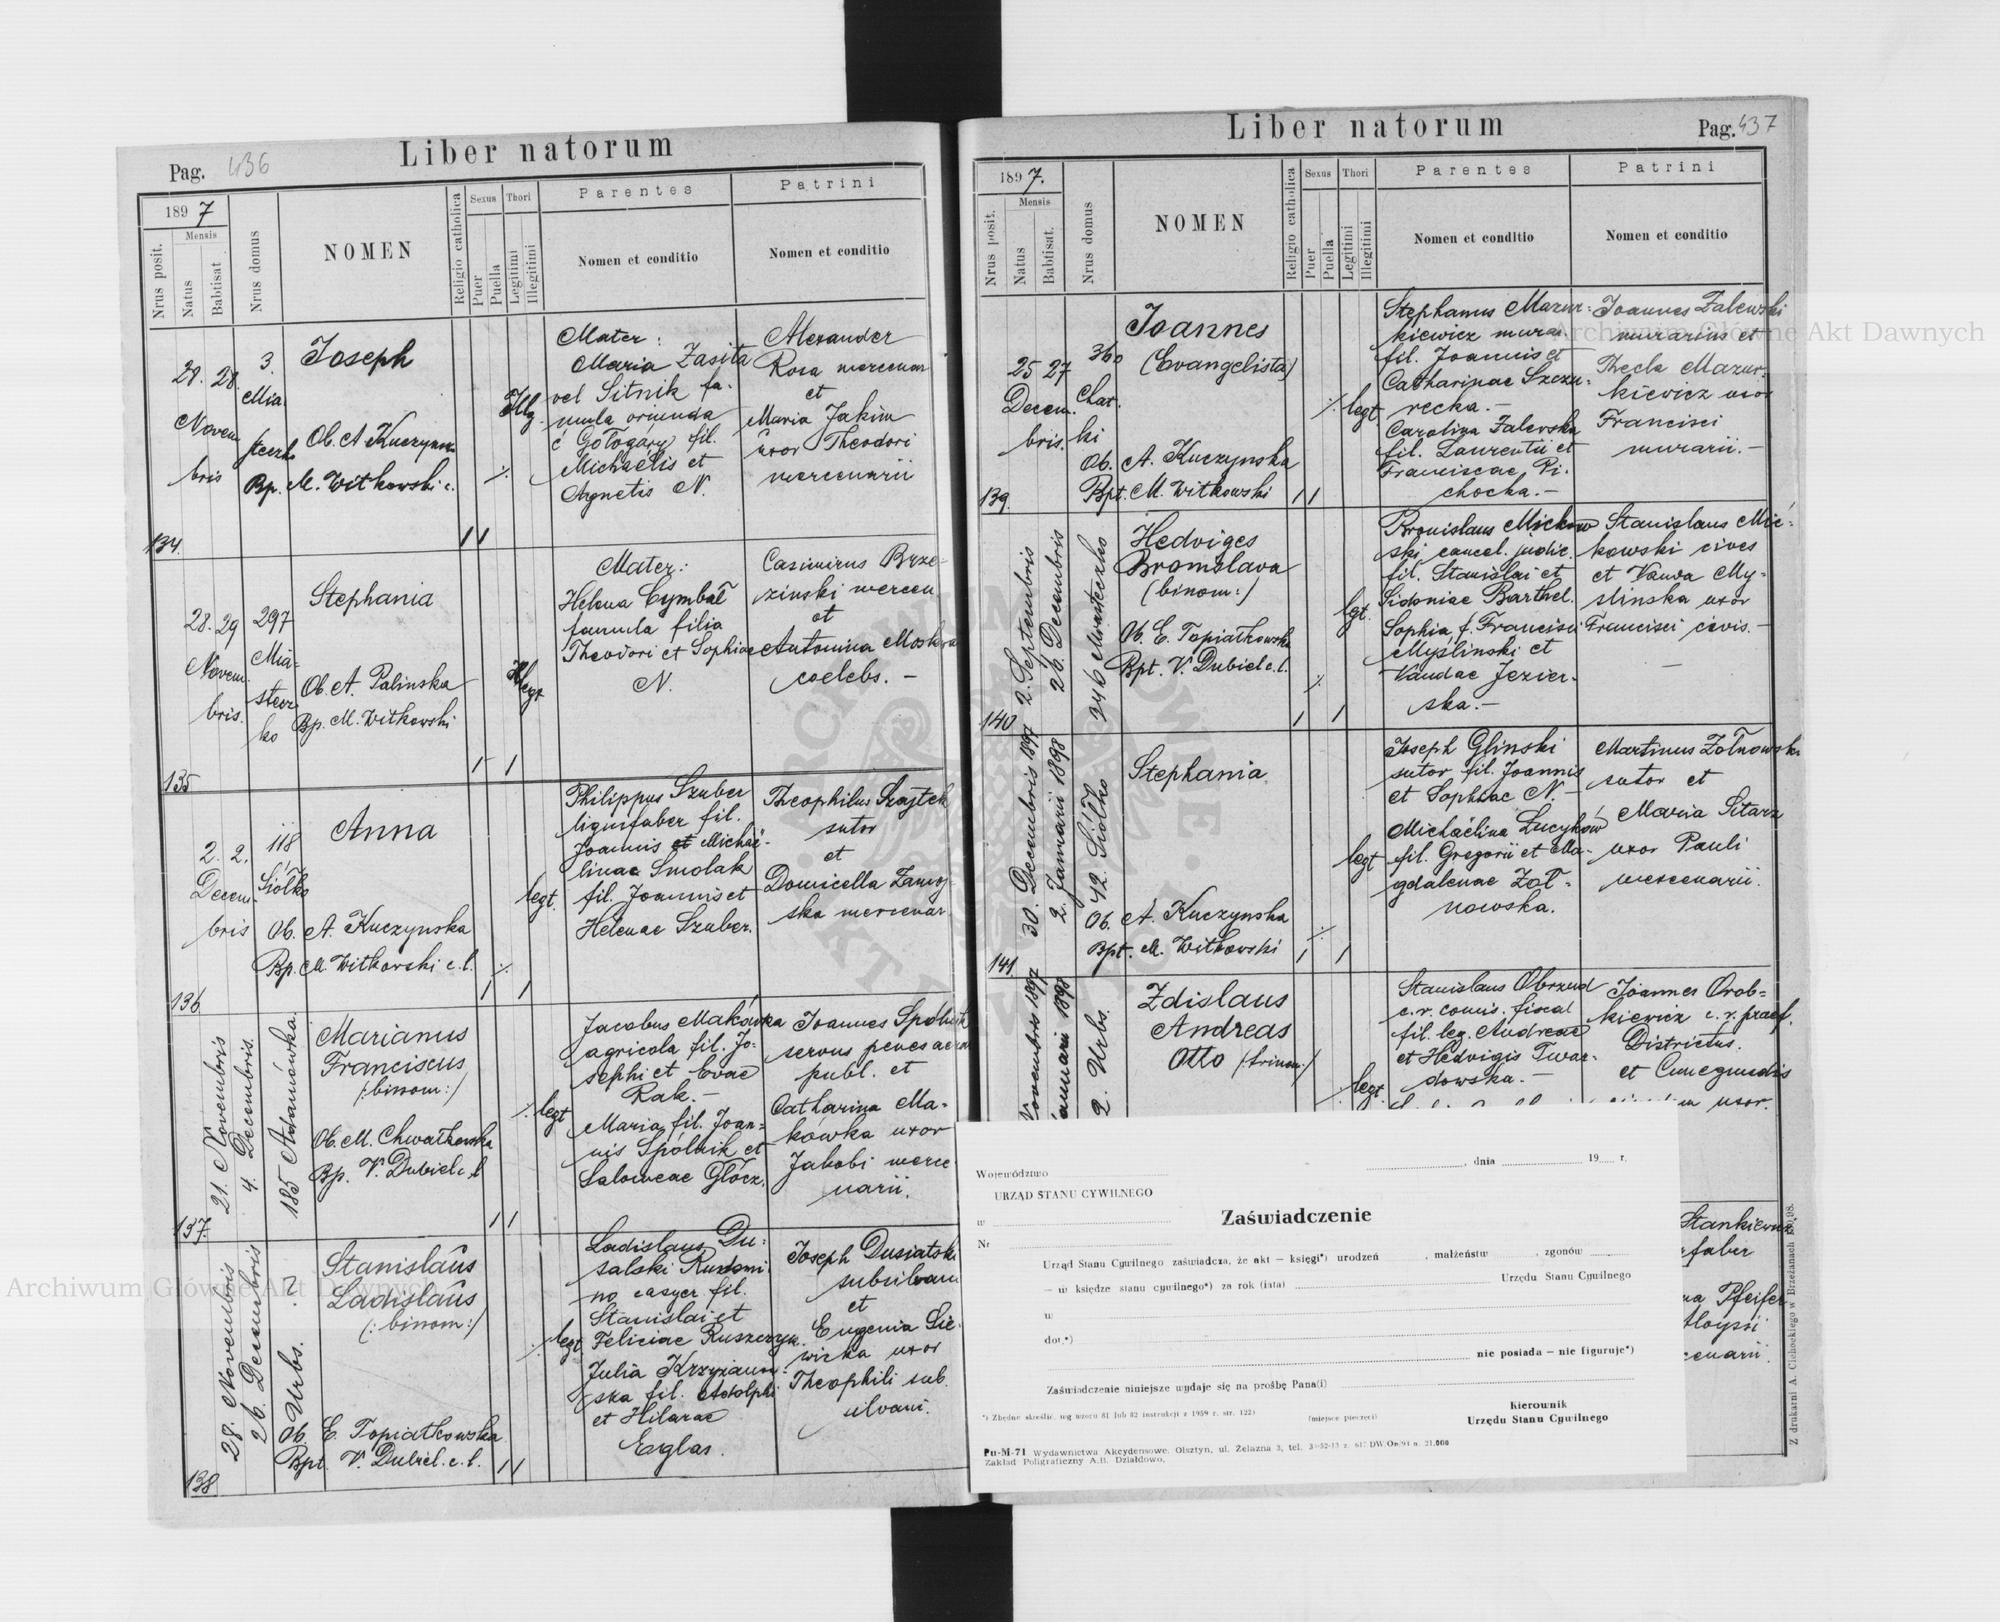 Liber natorum
Pag. 436
1897
Nrus posit.
Mensis
Natus
Babtisat
Nrus domus
NOMEN
Religio catholica
Sexus
Puer
Puella
Thori
Legitimi
Illegitimi
Parentes
Nomen et conditio
Patrini
Nomen et conditio
134
28. 28.
Novem
bris
3.
Mia
steczko
Joseph
Ob. A Kuczynska
Bp. M. Witkowski c.
Illg.
Mater:
Maria Zasita
vel Sitnik fa-
mula oriunda
č Gołogóry fil.
Michaëlis et
Agnetis N.
Alexander
Rosa mercenar
et
Maria Jakim
uxor Theodori
mercenarii
135
28. 29
Novem
bris.
297
Mia-
stecz
ko
Stephania
Ob. A. Palinska
Bp. M. Witkowski
Illegt
Mater:
Helena Cymbał
famula filia
Theodori et Sophiae
N.
Casimirus Brze-
zinski mercen
et
Antonina Moskwa
coelebs. -
136
2. 2.
Decem-
bris
118
Siółko
Anna
Ob. A. Kuczynska
Bp. M. Witkowski c. l.
legt.
Philippus Szuber
lignifaber fil.
Joannis et Michaë-
linae Smolak
fil. Joannis et
Helenae Szuber.
Theophilus Szajtek
sutor
et
Domicella Zamoj-
ska mercenar.
137.
21. Novembris
4. Decembris.
185 Adamówka
Marianus
Franciscus
(:binom:)
Ob. M. Chwatkowska
Bp. V. Dubiel c. l
legt
Jacobus Makówka
agricola fil. Jo-
sephi et Evae
Rak. -
Maria fil. Joan-
nis Spólnik et
Salomeae Głócz.
Joannes Spólnik
servus penes aerar
publ. et
Catharina Ma-
kówka uxor
Jakobi merce
narii.
138
28. Novembris
26. Decembris
? Urbs.
Stanislaus
Ladislaus
(:binom:)
Ob. E. Topiatkowska
Bpt. V. Dubiel. c. l.
legt
Ladislaus Du-
salski
no casyer fil.
Stanislai et
Feliciae
Julia Krzyżanow-
ska fil. Adolphi
et Hilarae
Eglas.
Joseph Dusiatski
subsilvan
et
Eugenia Sie-
wicka uxor
Theophili sub.
silvani.
Liber natorum
Pag. 437
1897.
Nrus posit.
Mensis
Natus
Babtisat.
Nrus domus
NOMEN
Religio catholica
Sexus
Puer
Puella
Thori
Legitimi
Illegitimi
Parentes
Nomen et conditio
Patrini
Nomen et conditio
139.
25 27
Decem.
bris.
360
Chat.
ki
Joannes
(Evangelista)
Ob. A. Kuczynska
Bpt. M. Witkowski
legt.
Stephanus Mazur-
kiewicz mura
fil. Joannis et
Catharinae Szczu-
recka. -
Carolina Zalewska
fil. Laurentii et
Franciscae Pi-
chocka. -
Joannes Zalewski
murarius et
Thecla Mazur-
kiewicz uxor
Francisci
murarii. -
140
2. Septembris
26. Decembris
246 Miasteczko
Hedviges
Bronislava
(binom:)
Ob. E. Topiatkowska
Bpt. V. Dubiel c. l.
lgt.
Bronislaus Mickow
ski cancel. judic.
fil. Stanislai et
Sidoniae Barthel.
Sophia f. Francisci
Myślinski et
Vandae Jezier-
ska. -
Stanislaus Mic-
kowski cives
et Vanda My-
slinska uxor
Francisci civis. -
141
30. Decembris 1897
2. Januarii 1898
42. Siółko
Stephania
Ob. A. Kuczynska
Bpt. M. Witkowski
legt
Joseph Glinski
sutor fil. Joannis
et Sophiae N. -
Michaëlina Lucyków
fil. Gregorii et Ma-
gdalenae Żoł-
nowska.
Martinus Żołnowski
sutor et
Maria Sitarz
uxor Pauli
mercenarii.
Novembris 1897
Januarii 1898
2. Urbs.
Zdislaus
Andreas
Otto (:trinom:)
legt.
Stanislaus Obrzud
c. r. comis. fiscal
fil. leg. Andreae
et Hedvigis Twar-
dowska. -
Joannes Orob-
kiewicz c. r. praef.
Districtus.
et Cunegundis
uxor.
Stankiewicz
faber
Pfeifer
Aloysii
cenarii.
Województwo
URZĄD STANU CYWILNEGO
w
Nr
, dnia 19 r.
Zaświadczenie
Urząd Stanu Cywilnego zaświadcza, że akt – księgi*) urodzeń , małżeństw , zgonów
– w księdze stanu cywilnego*) za rok (lata) Urzędu Stanu Cywilnego
w
dot.*)
nie posiada – nie figuruje*)
Zaświadczenie niniejsze wydaje się na prośbę Pana(i)
*) Zbędne skreślić, wg wzoru 81 lub 82 instrukcji z 1959 r. str. 122)
(miejsce pieczęci)
Kierownik
Urzędu Stanu Cywilnego
Pu-M-71 Wydawnictwa Akcydensowe, Olsztyn, ul. Żelazna 3, tel.
Zakład Poligraficzny A.B. Działdowo.
Z drukarni A. Cichockiego w Brzeżanach
Archiwum Główne Akt Dawnych
Archiwum Główne Akt Dawnych